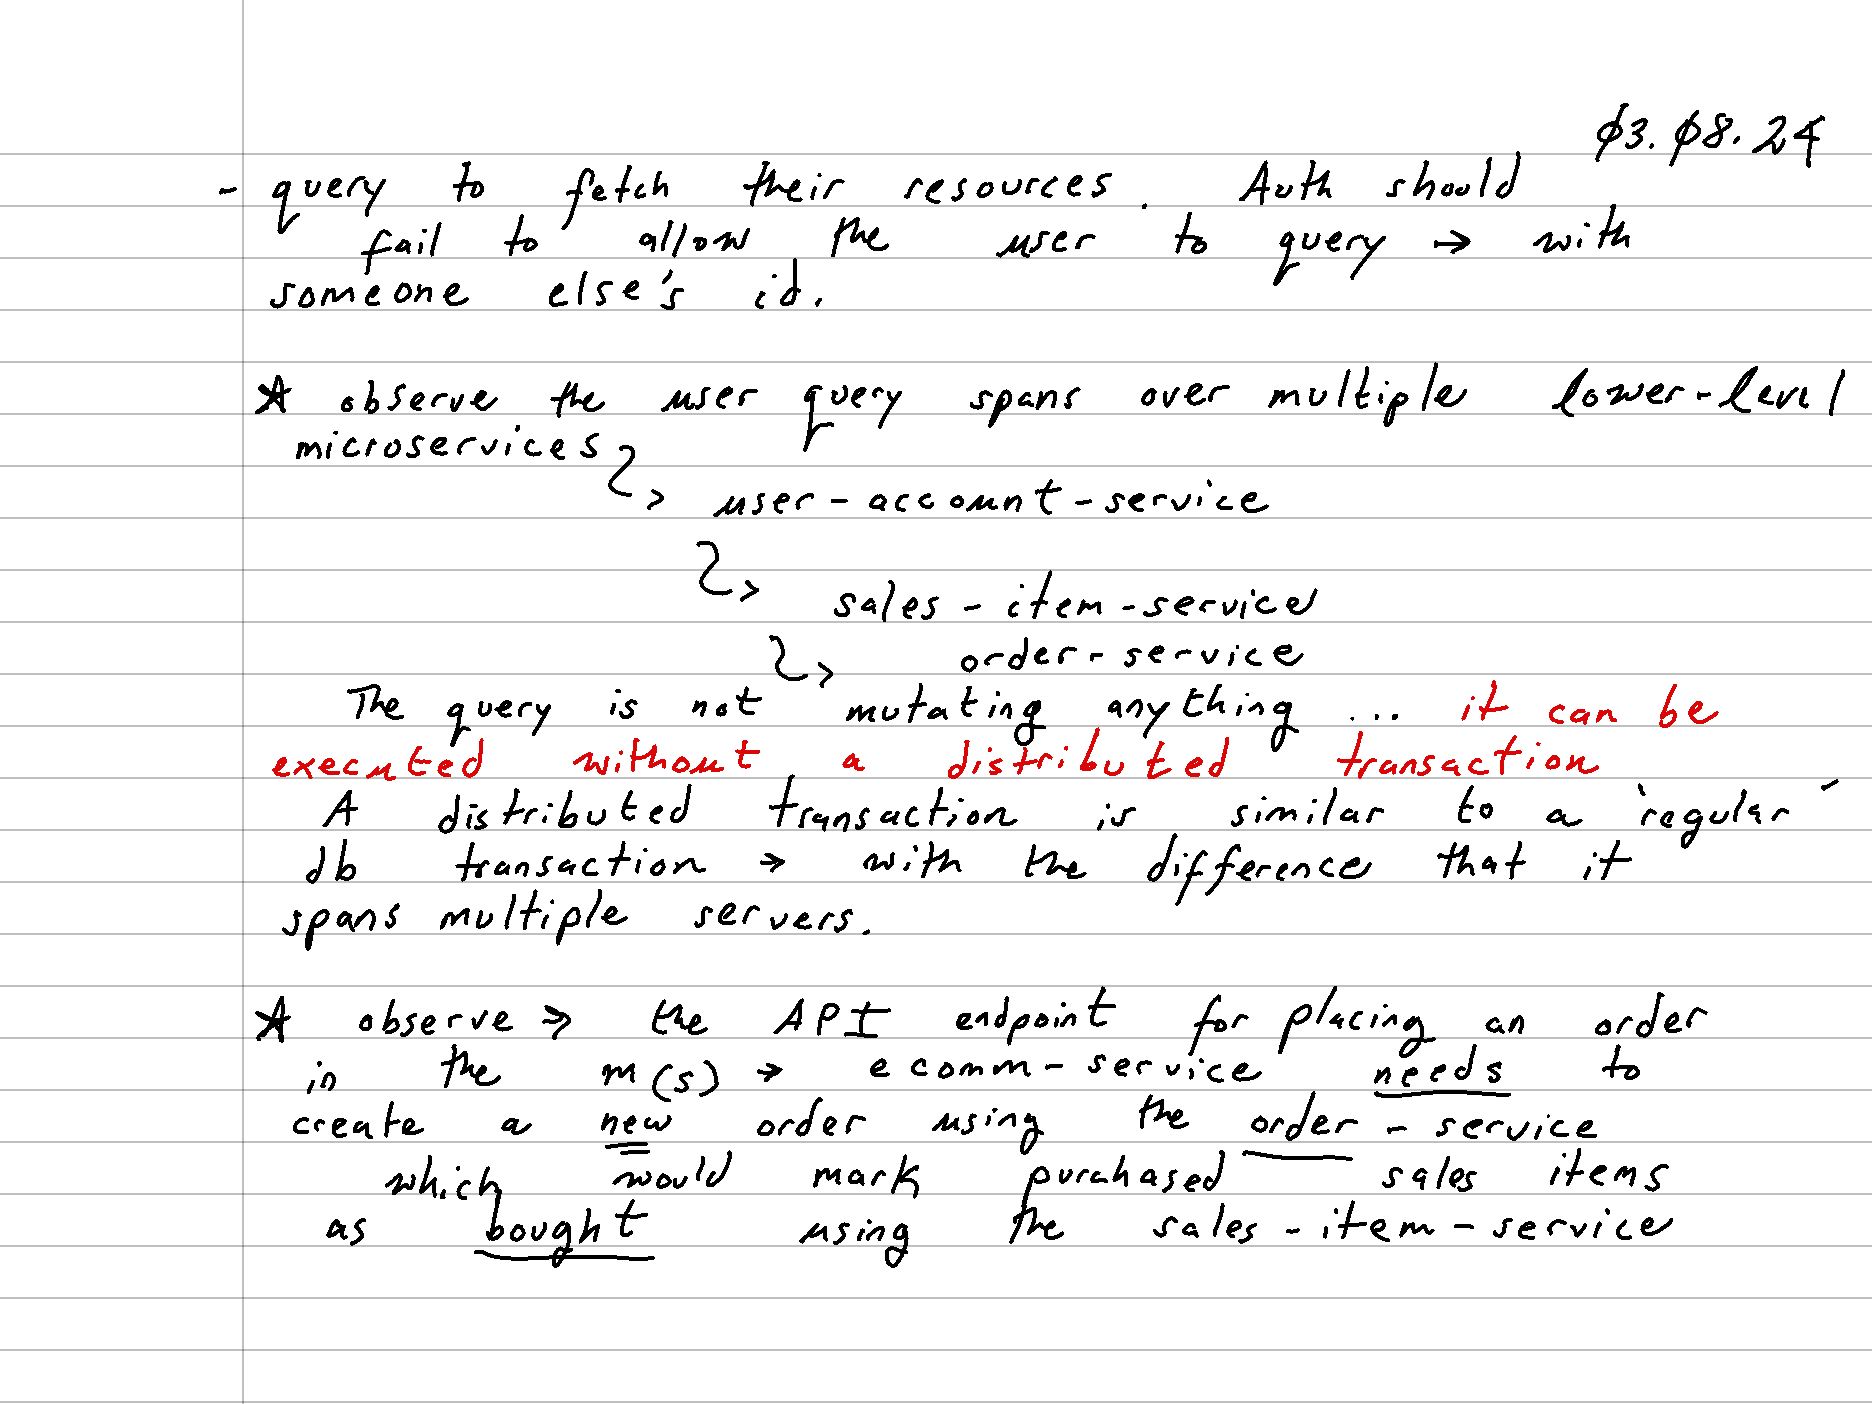 03.08.24
- query to fetch their resources. Auth should
fail to allow the user to query → with
someone else's id.
★ observe the user query spans over multiple lower-level
microservices
↳ user-account-service
↳ sales-item-service
↳ order-service
The query is not mutating anything ... it can be
executed without a distributed transaction
A distributed transaction is similar to a 'regular'
db transaction → with the difference that it
spans multiple servers.
★ observe → the API endpoint for placing an order
in the m(s) → ecomm-service needs to
create a new order using the order-service
which would mark purchased sales items
as bought using the sales-item-service